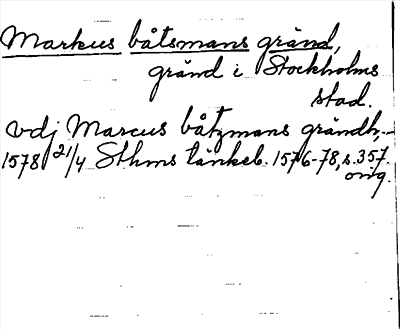 Markus båtsmans gränd,
gränd i Stockholms
stad.
vdj Marcus båtzmans grändh,-
1578 21/4 Sthms tänkeb. 1576-78, s. 357.
orig.